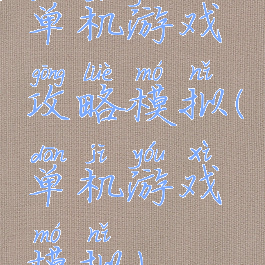 单机游戏
gōng lüè mó nǐ
攻略模拟(
dān jī yóu xì
单机游戏
mó nǐ
模拟)